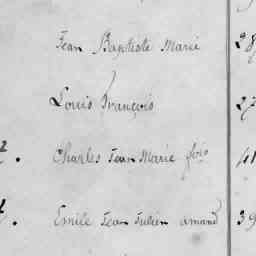 Jean Baptiste Marie 28
Louis François 27
Charles Jean Marie fois 41
Emile Jean Julien amand 39